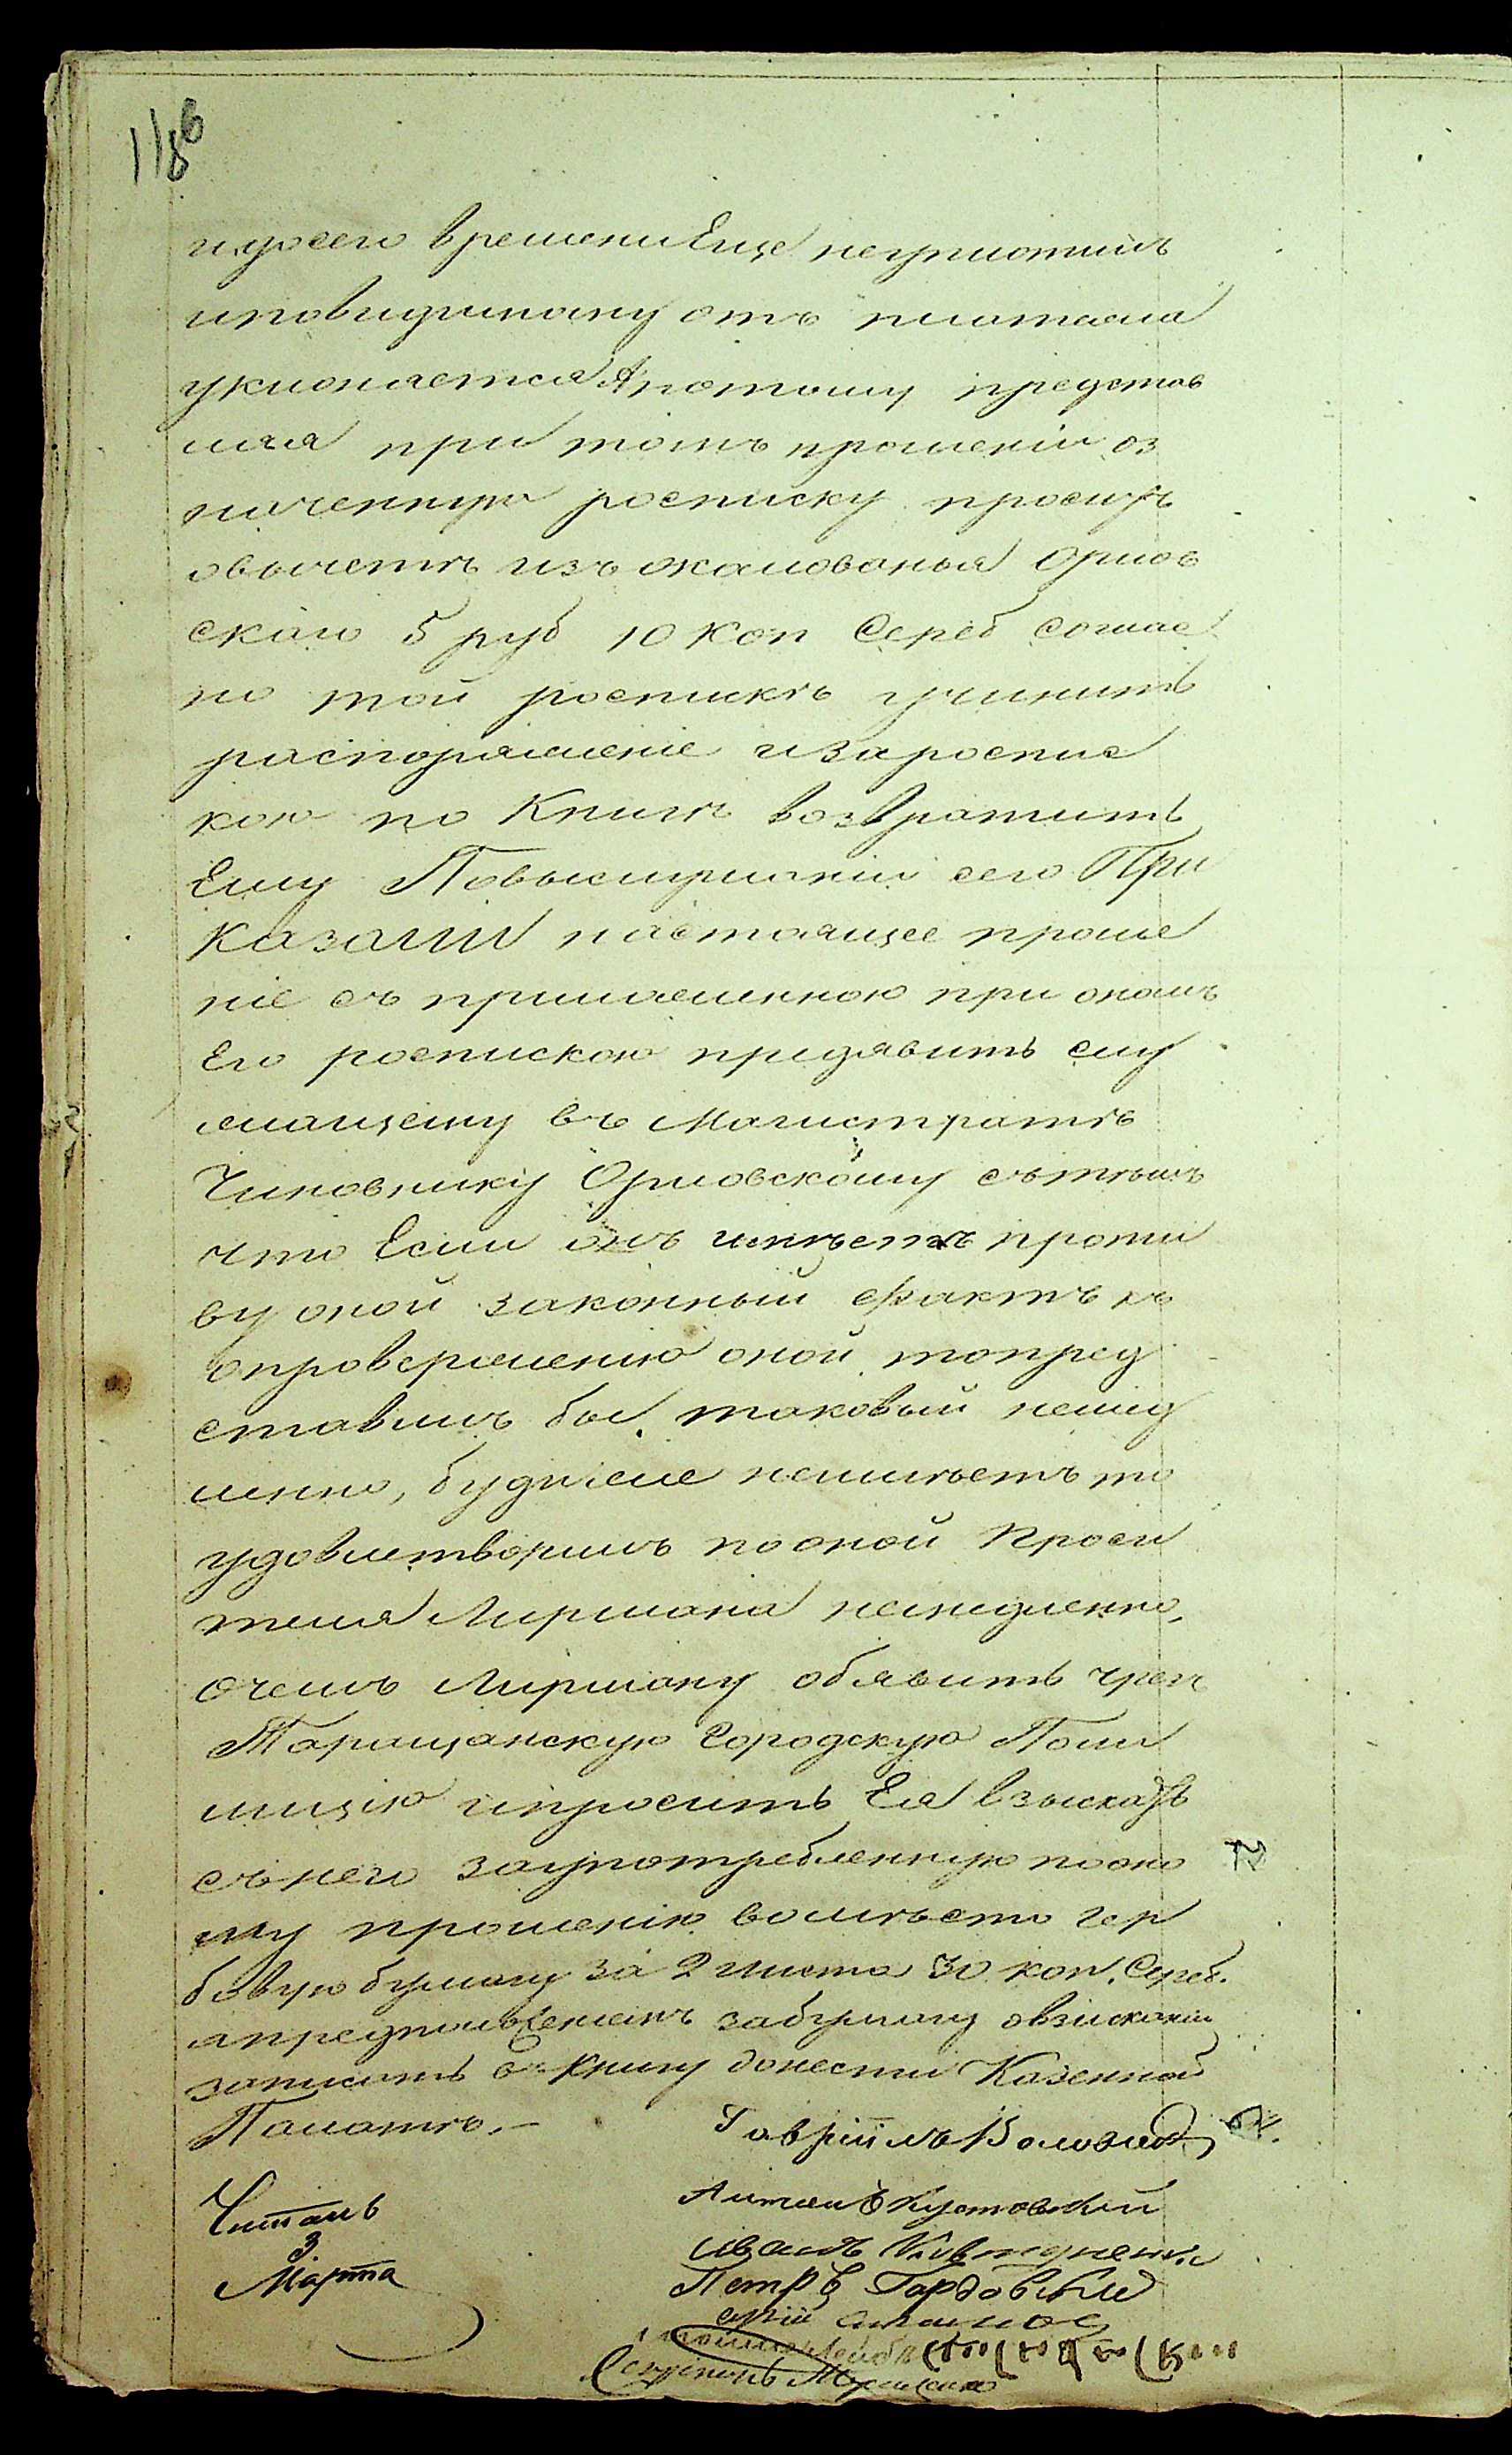 118
и досего времени Еще неуплотилъ
иповидимому отъ платежа
уклоняется Апотому представ
ляя при томъ прошеніи оз
наченную росписку просилъ
овычетѣ изъ жалованья Орлов
скаго 5 руб 10 коп Сереб соглас
но той роспискѣ учинить
распоряженіе изароспис
кою по Книгѣ возвратить
Ему Повыслушаніи сего При
казали настоящее проше
ніе съ приложенною при ономъ
Его роспискою предявить слу
жащему въ Магистратѣ
Чиновнику Орловскому стѣмъ
что Если онъ имѣетъ проти
ву оной законный фактъ къ
опроверженію оной топред
ставилъ бы таковый немед
ленно, будеже неимѣетъ то
удовлетворилъ пооной Проси
теля Лирмана немедленно,
очемъ Лирману обявить чрез
Таращанскую Городскую Поли
лицію ипросить Ея взыскать
снего заупотребленную поано
му прошенію вомѣсто гер
бовую бумагу за 2 листа 30 коп. Сереб.
забумагу овзисканіи
записать въ Книгу донести Казенной
Палатѣ.—
Гавріилъ
Читалъ
3
Марта
Антонъ Кустовскій
Иванъ
Петръ Гордовскій